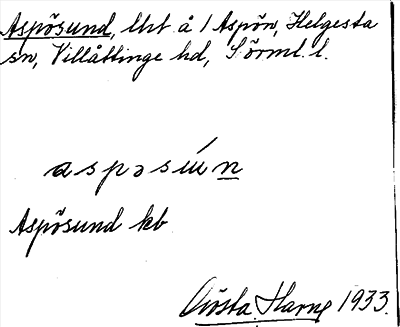 Aspösund, lht å 1 Aspön, Helgesta
sn, Villåttinge hd, Sörml. l.
aspəsún
Aspösund kb
Gösta Harne 1933.